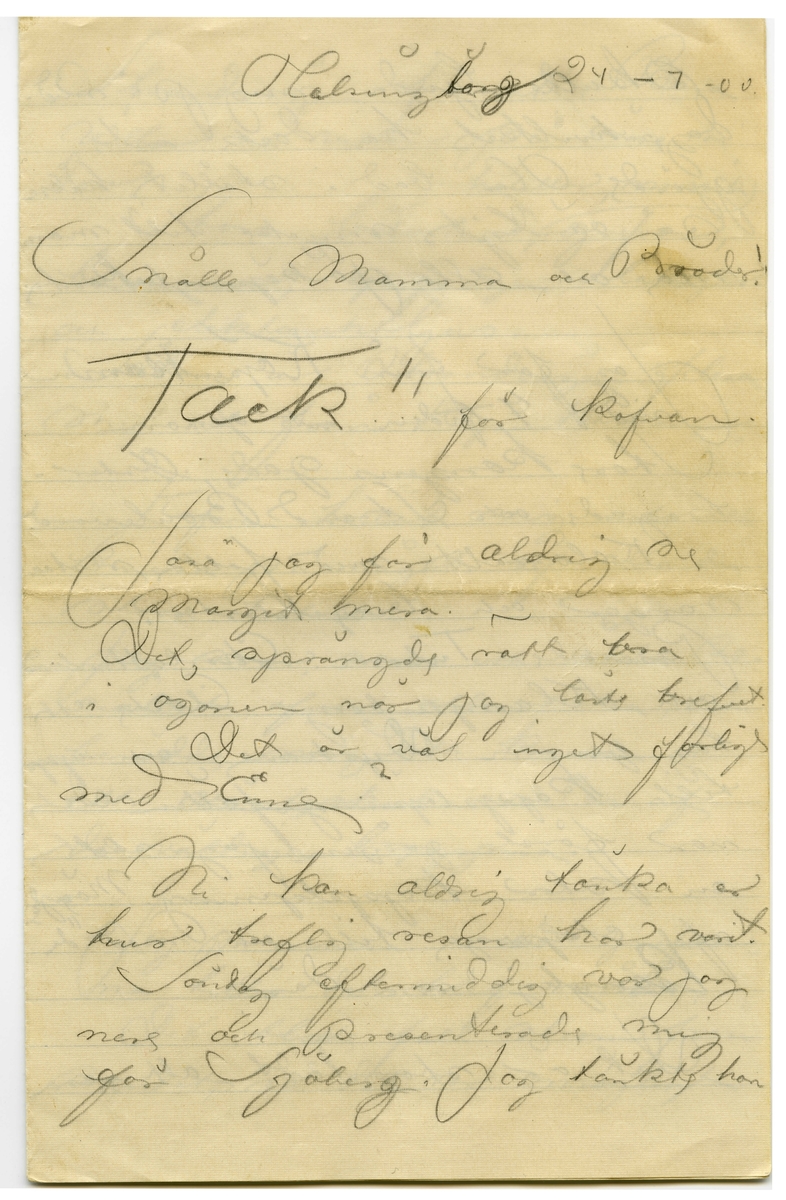 Helsingborg 24 - 7 - 00.
Snälle Mamma och Bröder!
Tack!! för kofvan.
Jaså jag får aldrig se
Margit mera.
Det, sprängde rätt bra
i ögonen när jag läste brefvet.
Det är väl inget farligt
med Enne?
Ni kan aldrig tänka er
hur treflig resan har varit.
Söndag eftermiddag var jag
nere och presenterade mig
för Sjöberg. Jag tänkte han